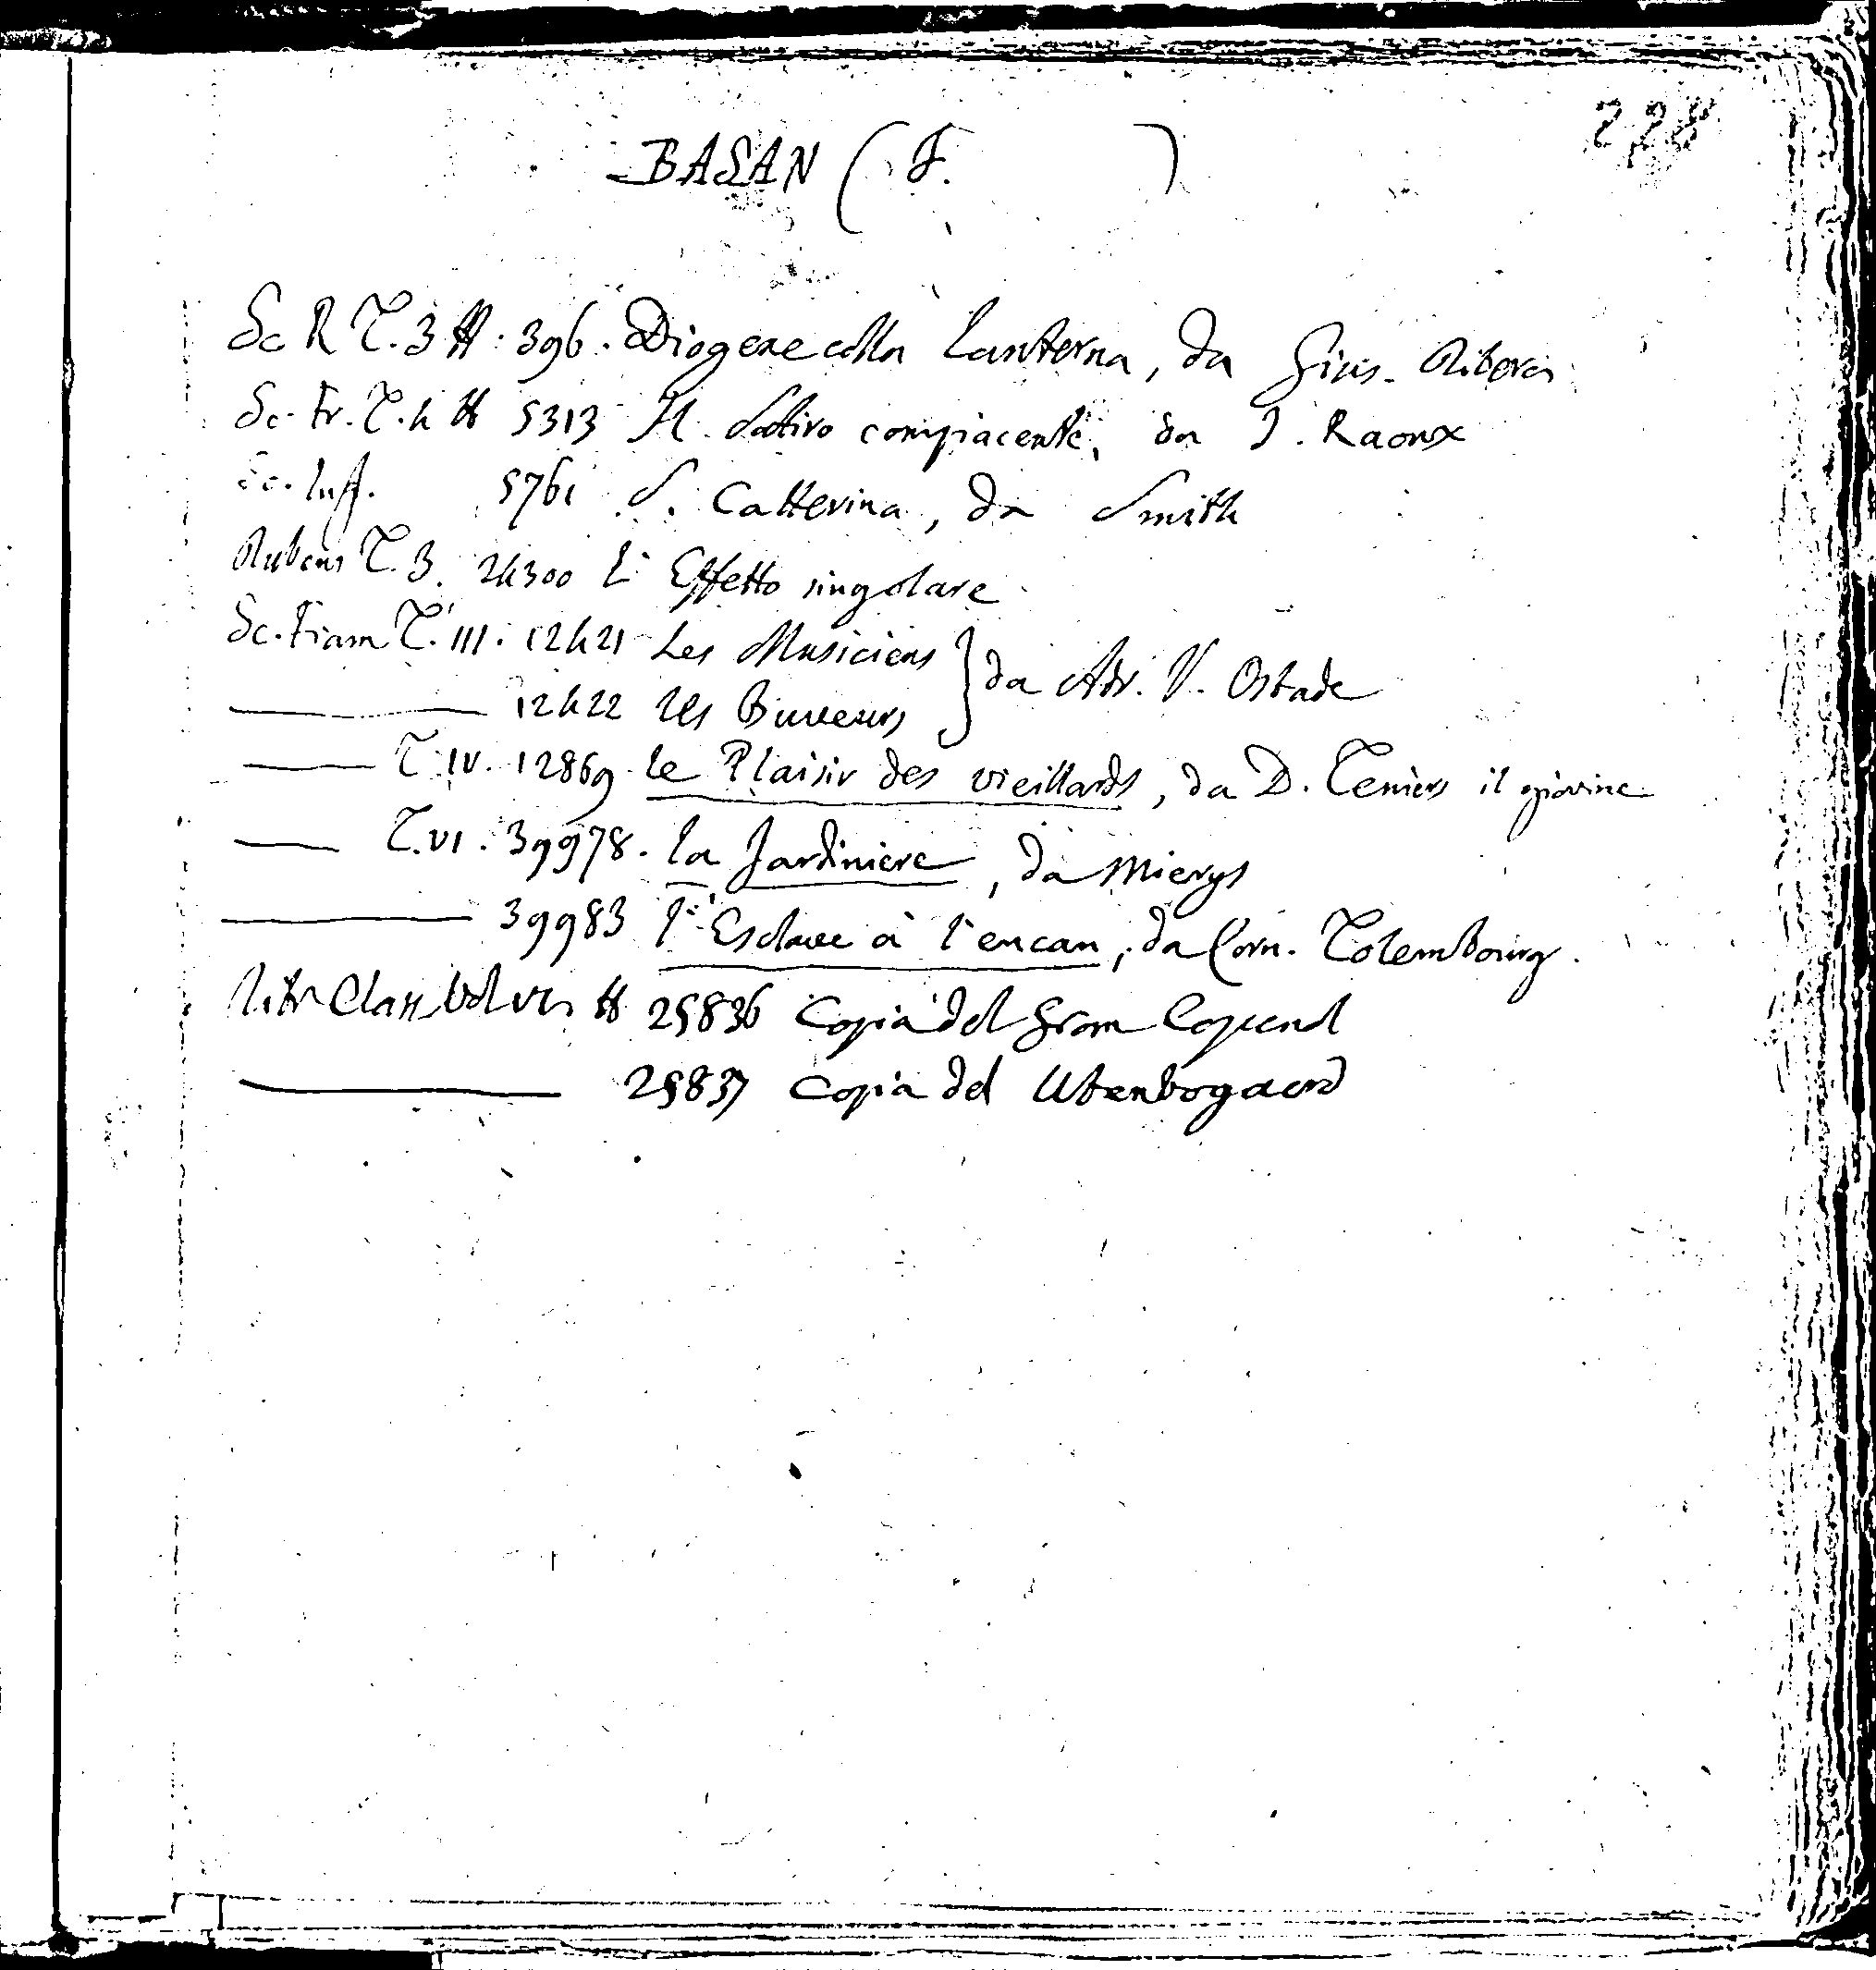 228
BASAN (F. )
Sc R T. 3 # . 396 . Diogene colla Lanterna, da Gius. Ribera
Sc. Fr. T. 4 # 5313 Il Satiro compiacente, da J. Raoux
Sc. Ing. 5761 S. Catterina, da Smith
Rubens T. 3. 24300 L' Effetto singolare
Sc. Fiam T. III. 12421 Les Musiciens } da Adr. V. Ostade
12422 les Buveurs
T. IV. 12869 le Plaisir des vieillards, da D. Teniers il giovine
T. VI. 39978. la Jardiniere, da Mierys
39983 l'Esclave à l'encan, da Corn. Tolembourg.
Class # 25836 Copia del Gran Copenol
25837 Copia del Utenbogaerd